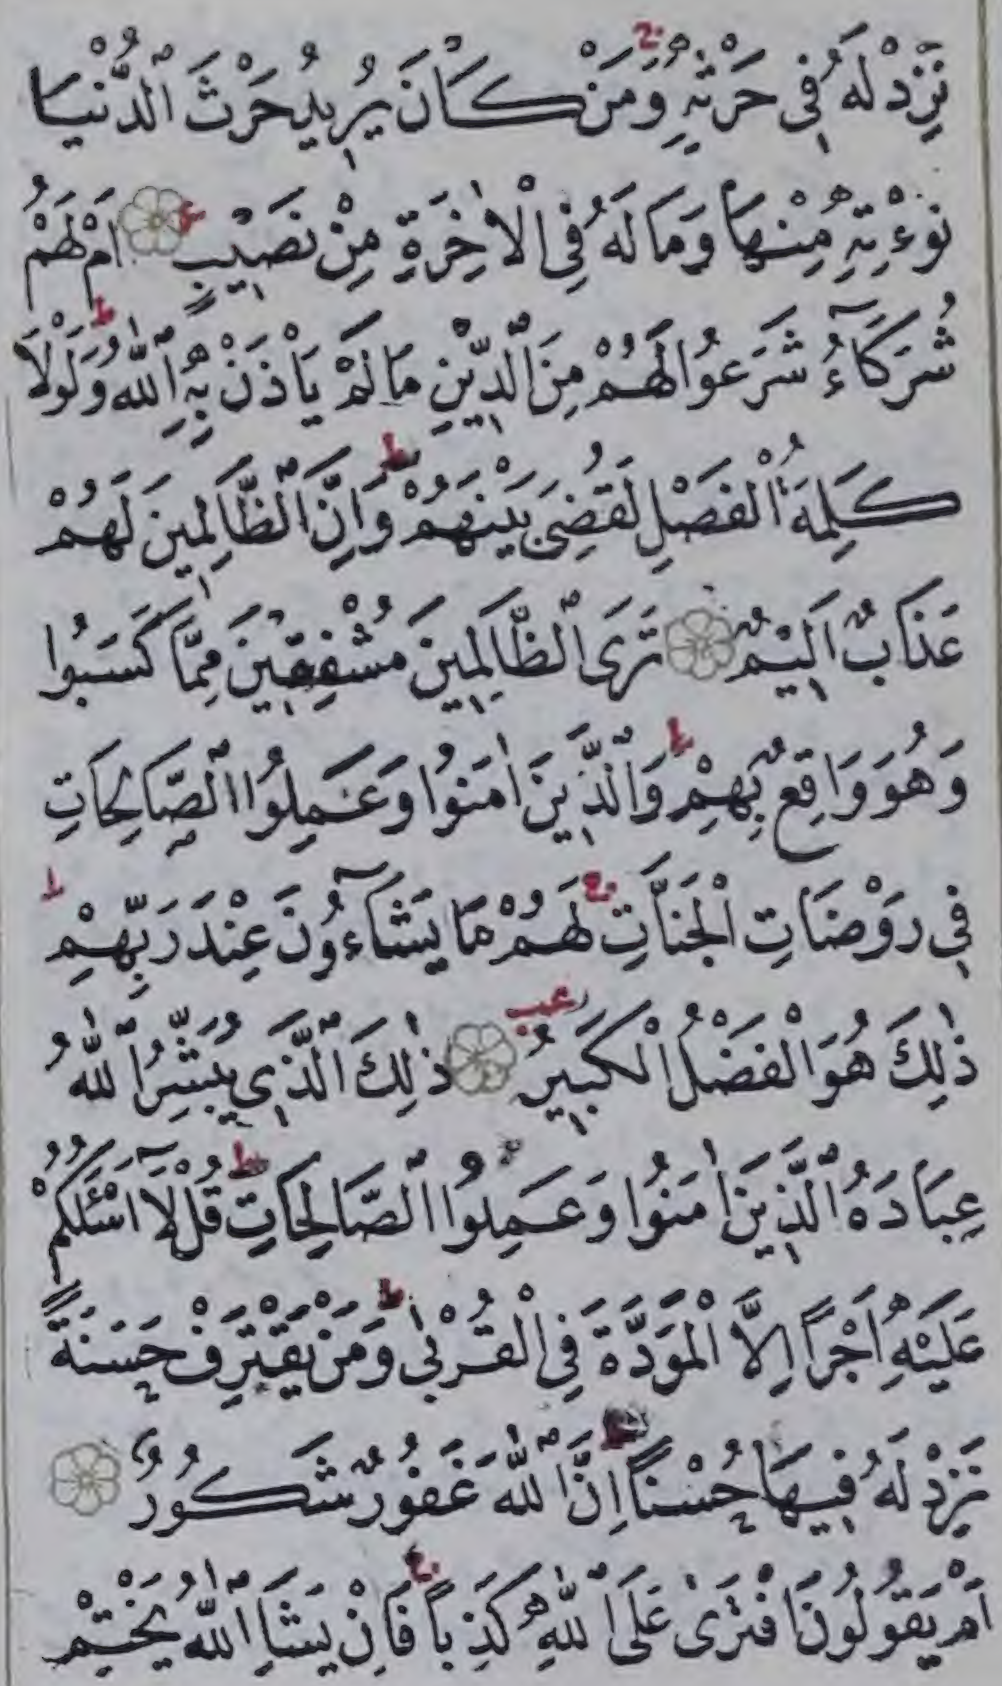 نَزِدْ لَهُ فِى حَرْثِهِ وَمَنْ كَانَ يُرِيدُ حَرْثَ الدُّنْيَا
نُؤْتِهِ مِنْهَا وَمَا لَهُ فِى الْاٰخِرَةِ مِنْ نَصِيبٍ اَمْ لَهُمْ
شُرَكَآءُ شَرَعُوا لَهُمْ مِنَ الدِّينِ مَا لَمْ يَاْذَنْ بِهِ اللّٰهُ وَلَوْلَا
كَلِمَةُ الْفَصْلِ لَقُضِىَ بَيْنَهُمْ وَاِنَّ الظَّالِمِينَ لَهُمْ
عَذَابٌ اَلِيمٌ تَرَى الظَّالِمِينَ مُشْفِقِينَ مِمَّا كَسَبُوا
وَهُوَ وَاقِعٌ بِهِمْ وَالَّذِينَ اٰمَنُوا وَعَمِلُوا الصَّالِحَاتِ
فِى رَوْضَاتِ الْجَنَّاتِ لَهُمْ مَا يَشَآءُونَ عِنْدَ رَبِّهِمْ
ذٰلِكَ هُوَ الْفَضْلُ الْكَبِيرُ ذٰلِكَ الَّذِى يُبَشِّرُ اللّٰهُ
عِبَادَهُ الَّذِينَ اٰمَنُوا وَعَمِلُوا الصَّالِحَاتِ قُلْ لَآ اَسْئَلُكُمْ
عَلَيْهِ اَجْرًا اِلَّا الْمَوَدَّةَ فِى الْقُرْبٰى وَمَنْ يَقْتَرِفْ حَسَنَةً
نَزِدْ لَهُ فِيهَا حُسْنًا اِنَّ اللّٰهَ غَفُورٌ شَكُورٌ
اَمْ يَقُولُونَ افْتَرٰى عَلَى اللّٰهِ كَذِبًا فَاِنْ يَشَاِ اللّٰهُ يَخْتِمْ